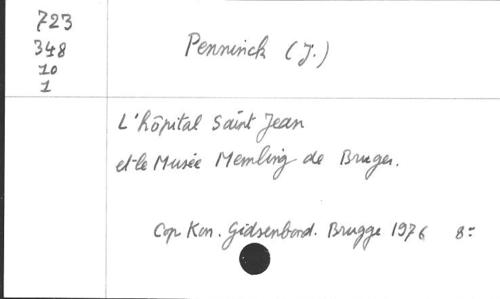 723
348
10
1
Penninck (J.)
L'hôpital Saint Jean
et le Musée Memling de Bruges.
Cop Kon. Gidsenbond. Brugge 1976 8°